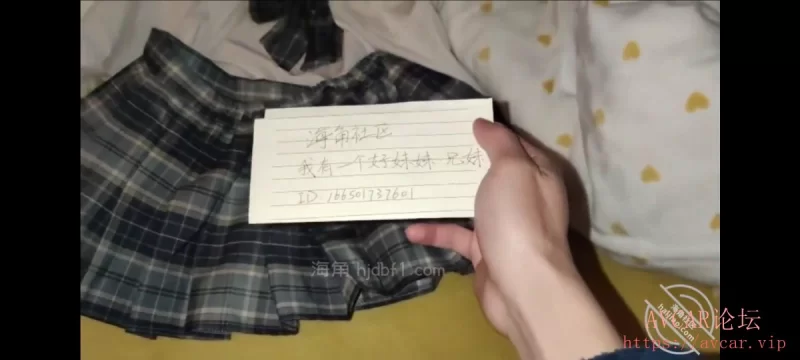 海角社区
我有一个好妹妹 兄妹
ID 166501737601
海角 hjdbf1.com
AVCAR论坛
https://avcar.vip